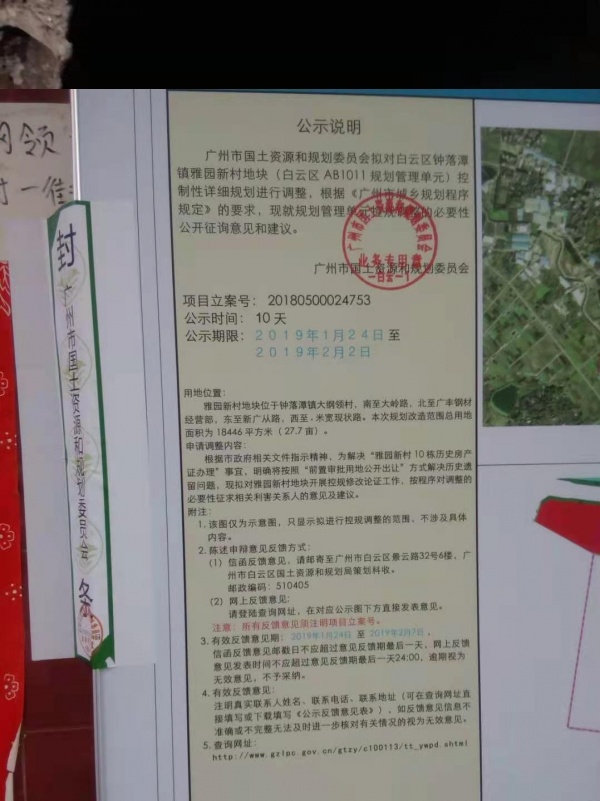 公示说明
广州市国土资源和规划委员会拟对白云区钟落潭
镇雅园新村地块（白云区AB1011规划管理单元）控
制性详细规划进行调整，根据《广州市城乡规划程序
规定》的要求，现就规划管理单元控规调整的必要性
公开征询意见和建议。
广州市国土资源和规划委员会
业务专用章
项目立案号：20180500024753
公示时间：10天
公示期限：2019年1月24日至
2019年2月2日
用地位置：
雅园新村地块位于钟落潭镇大纲领村，南至大岭路，北至广丰钢材
经营部，东至新广从路，西至-米宽现状路。本次规划改造范围总用地
面积为18446平方米（27.7亩）。
申请调整内容：
根据市政府相关文件指示精神，为解决“雅园新村10栋历史房产
证办理”事宜，明确将按照“前置审批用地公开出让”方式解决历史遗
留问题，现拟对雅园新村地块开展控规修改论证工作，按程序对调整的
必要性征求相关利害关系人的意见及建议。
附注：
1.该图仅为示意图，只显示拟进行控规调整的范围，不涉及具体
内容。
2.陈述申辩意见反馈方式：
（1）信函反馈意见，请邮寄至广州市白云区景云路32号6楼，广
州市白云区国土资源和规划局策划科收。
邮政编码：510405
（2）网上反馈意见：
请登陆查询网址，在对应公示图下方直接发表意见。
注意：所有反馈意见须注明项目立案号。
3.有效反馈意见期：2019年1月24日 至 2019年2月7日，
信函反馈意见邮戳日不应超过意见反馈期最后一天，网上反馈
意见发表时间不应超过意见反馈期最后一天24:00，逾期视为
无效意见，不予采纳。
4.有效反馈意见：
注明真实联系人姓名、联系电话、联系地址（可在查询网址直
接填写或下载填写《公示反馈意见表》），如反馈意见信息不
准确或不完整无法及时进一步核对有关情况的视为无效意见。
5.查询网址：
http://www.gzlpc.gov.cn/gtzy/c100113/tt_ywpd.shtml
封
广州市国土资源和规划委员会
条
领
村一